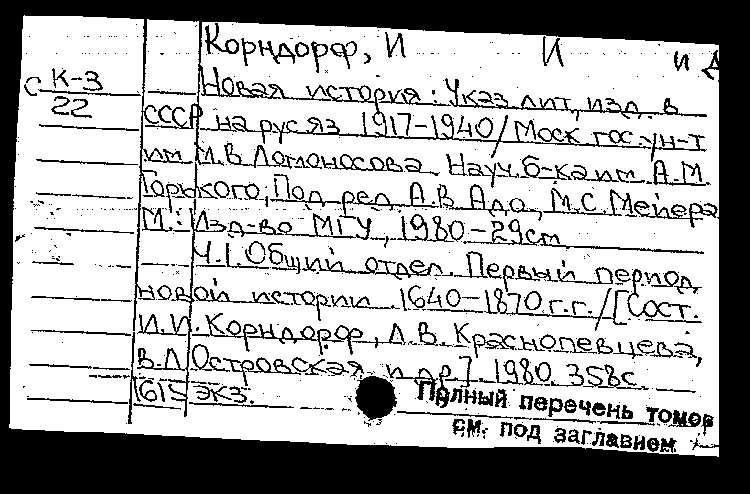 Корндорф, И И и д
С К-3
22
Новая история: Указ лит, изд. в
СССР на рус яз 1917-1940/Моск гос. ун-т
им М.В Ломоносова. Науч. б-ка им А.М.
Горького, Под ред А.В Адо, М.С. Мейера
М.: Изд-во МГУ, 1980-29см
Ч.I. Общий отдел. Первый период
новой истории 1640-1870г.г./[Сост.
И.И. Корндорф, Л.В. Краснопевцева,
В.Л Островская и др]. 1980. 358с.
1615 экз.
Полный перечень томов
см. под заглавием